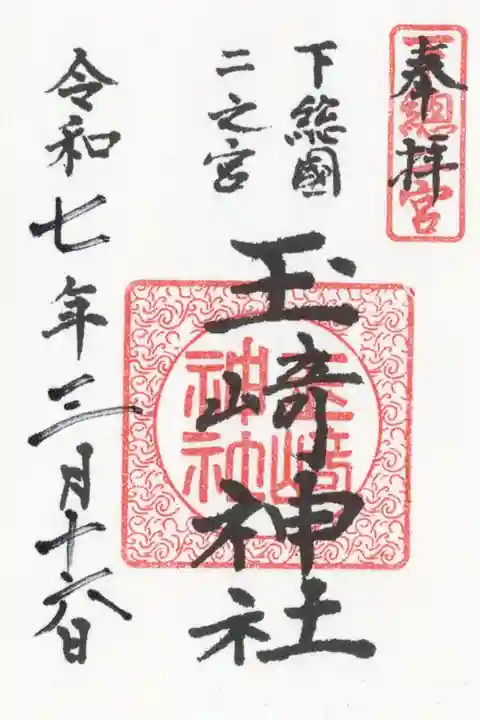 奉拝
下総國
二之宮
玉﨑神社
令和七年三月十六日
玉崎
神社